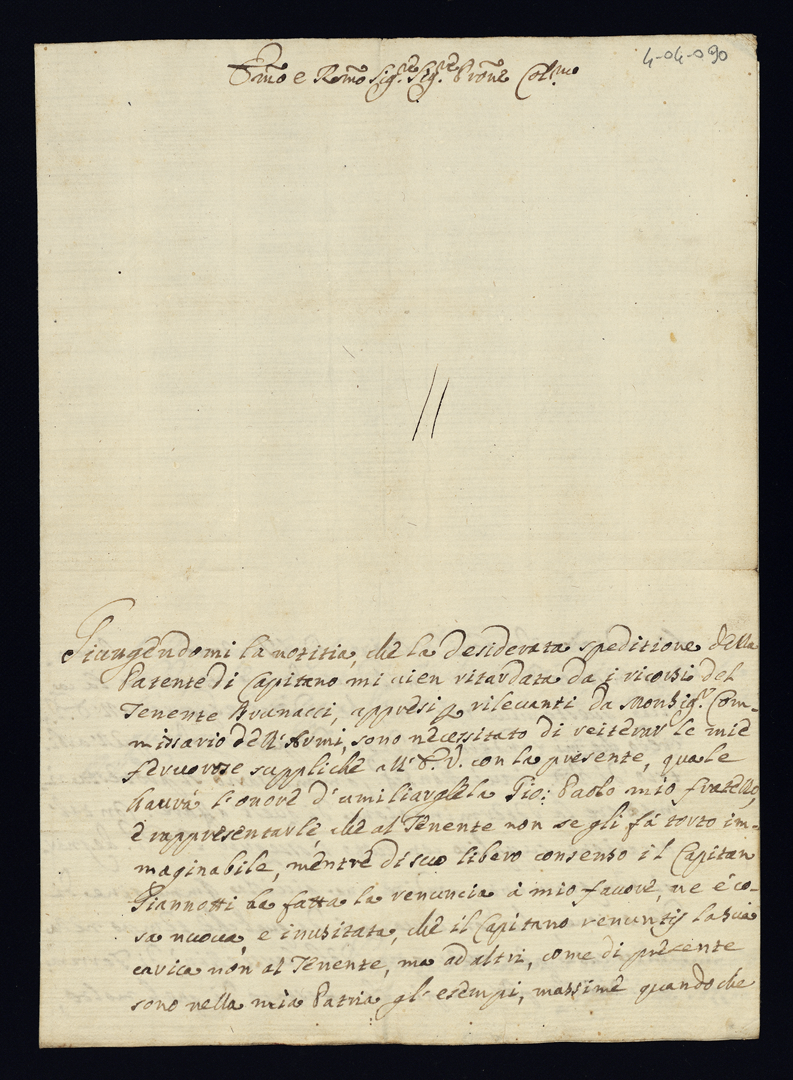 4-04-090
Emo e Rmo Sigre Sigre Prone Colmo
Giungendomi la notitia, che la desiderata speditione della
Patente di Capitano mi vien ritardata da i ricorsi del
Tenente Brunacci, appresi p rilevanti da Monsigr Com-
missario dell'Armi, sono necessitato di reiterar le mie
fervorose suppliche all' E.V. con la presente, quale
havrà l'onore d'umiliargliela Gio: Paolo mio fratello,
e rappresentarle che al Tenente non se gli fà torto im-
maginabile, mentre di suo libero consenso il Capitan
Giannotti ha fatta la renuncia à mio favore, ne è co-
sa nuova, e inusitata, che il Capitano renuntij la sua
carica non al Tenente, ma ad altri, come di presente
sono nella mia Patria gl'esempi, massime quando che